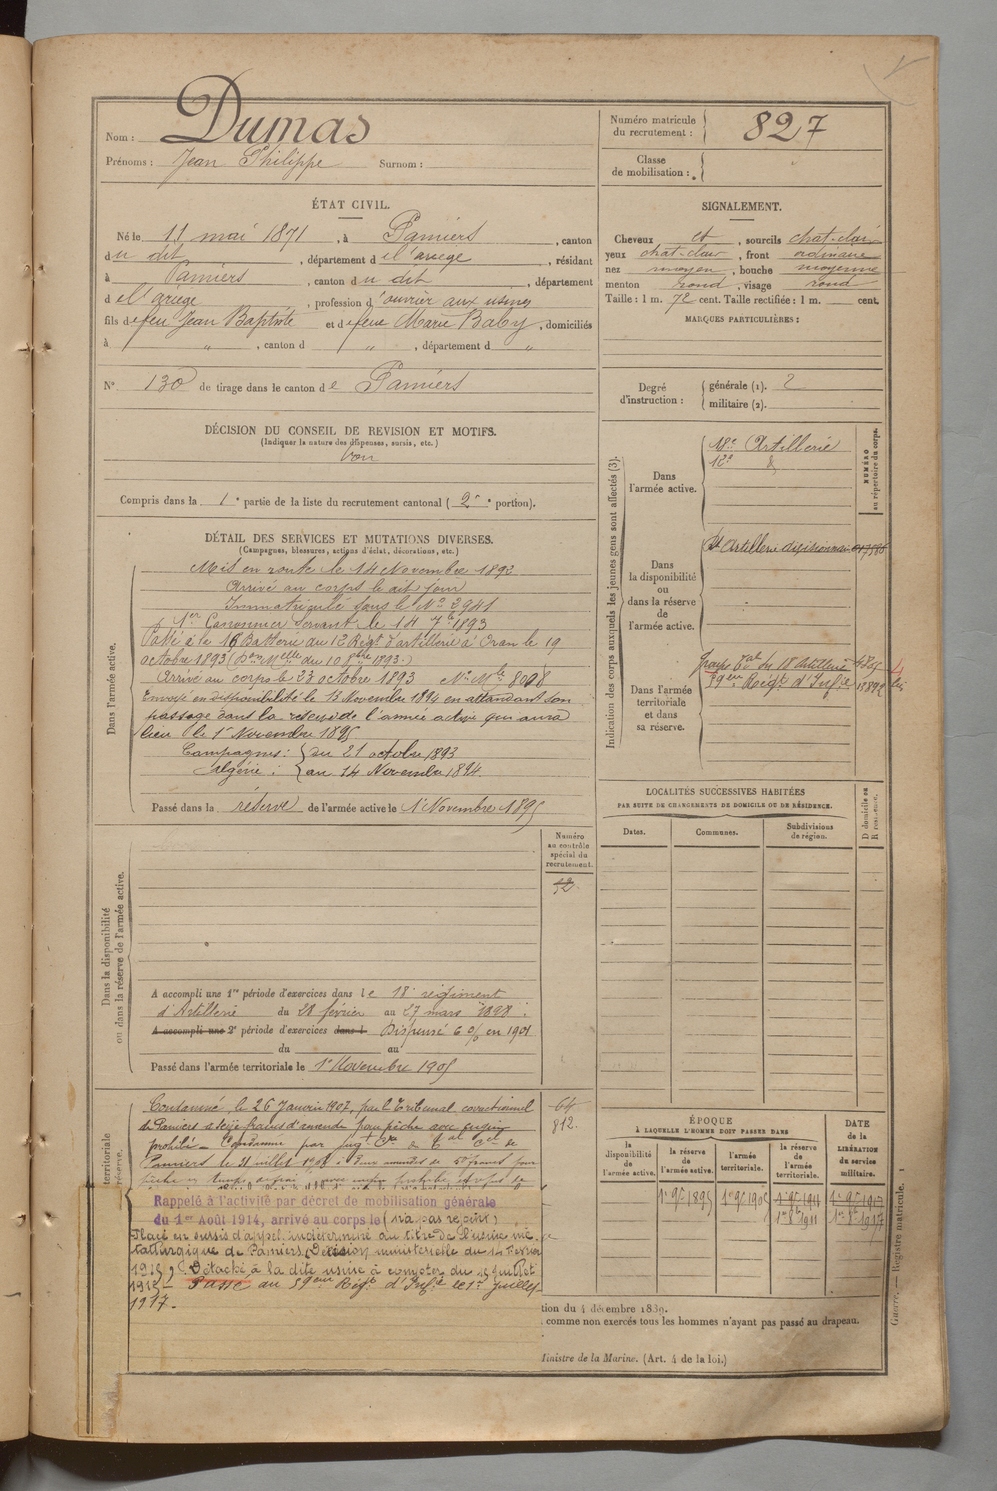 Nom : Dumas
Prénoms : Jean Philippe Surnom :
Numéro matricule
du recrutement : 827
Classe
de mobilisation :
ÉTAT CIVIL.
Né le 11 mai 1871, à Pamiers, canton
du dit, département de l'ariège, résidant
à Pamiers, canton du dit, département
de l'ariège, profession d'ouvrier aux usines
fils de feu Jean Baptiste et de feue Marie Baby, domiciliés
à " , canton d " , département d "
N° 130 de tirage dans le canton de Pamiers
SIGNALEMENT.
Cheveux et, sourcils chat-clair
yeux chat-clair, front ordinaire
nez moyen, bouche moyenne
menton rond, visage rond
Taille : 1 m. 72 cent. Taille rectifiée : 1 m. cent.
MARQUES PARTICULIÈRES :
Degré
d'instruction :
générale (1). 2
militaire (2).
DÉCISION DU CONSEIL DE REVISION ET MOTIFS.
(Indiquer la nature des dispenses, sursis, etc.)
bon
Compris dans la 1e partie de la liste du recrutement cantonal (2e portion).
DÉTAIL DES SERVICES ET MUTATIONS DIVERSES.
(Campagnes, blessures, actions d'éclat, décorations, etc.)
Dans l'armée active.
Mis en route le 14 Novembre 1892
Arrivé au corps le dit jour
Immatriculé sous le No 2941
1er Canonnier Servant le 14 7bre 1893
Passé à la 16 Batterie du 12 Régt d'artillerie à Oran le 19
octobre 1893 (Don Melle du 10 8bre 1893.)
Arrivé au corps le 23 octobre 1893 No Mle 8098
Envoyé en disponibilité le 13 Novembre 1894 en attendant son
passage dans la réserve de l'armée active qui aura
lieu le 1er Novembre 1895
Campagnes : du 21 octobre 1893
Algérie : au 14 Novembre 1894
Passé dans la réserve de l'armée active le 1er Novembre 1895
Indication des corps auxquels les jeunes gens sont affectés (3).
NUMÉRO
au répertoire du corps.
Dans
l'armée active.
18e Artillerie
12e d
Dans
la disponibilité
ou dans la réserve
de
l'armée active.
Artillerie divisionnaire
Dans l'armée
territoriale
et dans
sa réserve.
Groupe tal du 18 Artillerie
59eme Régt d'Infie
LOCALITÉS SUCCESSIVES HABITÉES
PAR SUITE DE CHANGEMENTS DE DOMICILE OU DE RÉSIDENCE.
Dates.
Communes.
Subdivisions
de région.
D domicile ou
R résidence.
Numéro
au contrôle
spécial du
recrutement.
12
Dans la disponibilité
ou dans la réserve de l'armée active.
A accompli une 1re période d'exercices dans le 18e régiment
d'Artillerie du 28 février au 27 mars 1898
A accompli une 2e période d'exercices dans l Dispensé 6 % en 1901
du au
Passé dans l'armée territoriale le 1er Novembre 1905
territoriale
réserve.
64
812.
Condamné le 26 Janvier 1907, par le Tribunal correctionnel
de Pamiers à seize francs d'amende pour pêche avec engin
prohibé - Condamné par jugt du tal cel de
Pamiers le 31 juillet 1908 à deux amendes de 50 francs pour
Rappelé à l'activité par décret de mobilisation générale
du 1er Août 1914, arrivé au corps le (n'a pas rejoint)
Placé en sursis d'appel indéterminé au titre de l'usine mé-
tallurgique de Pamiers (Décision ministérielle du 14 Fevrier
1915). Détaché à la dite usine à compter du 15 juillet
1915 - Passé au 59eme Régt d'Infie le 1er Juillet
1917.
ÉPOQUE
À LAQUELLE L'HOMME DOIT PASSER DANS
la
disponibilité
de
l'armée active.
la réserve
de
l'armée active.
l'armée
territoriale.
la réserve
de
l'armée
territoriale.
DATE
de la
LIBÉRATION
du service
militaire.
1er 9bre 1895
1er 9bre 1905
1er 9bre 1911
1er 9bre 1917
1er 8bre 1911
1er 8bre 1917
tion du 4 décembre 1889.
comme non exercés tous les hommes n'ayant pas passé au drapeau.
Ministre de la Marine. (Art. 4 de la loi.)
Guerre. — Registre matricule. 1